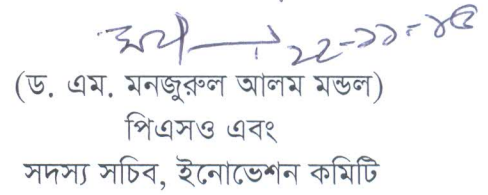 ২২-১১-১৫
(ড. এম. মনজুরুল আলম মন্ডল)
পিএসও এবং
সদস্য সচিব, ইনোভেশন কমিটি